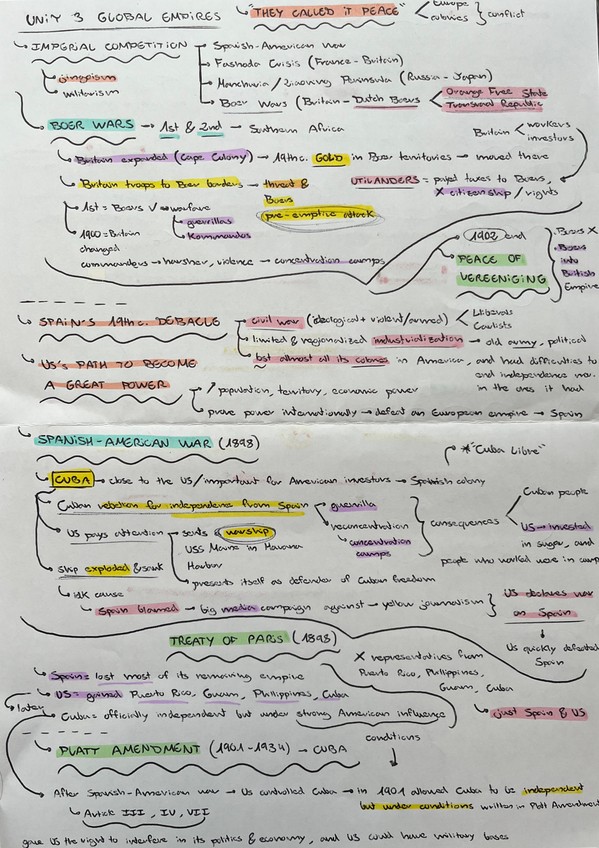 UNIT 3 GLOBAL EMPIRES
"THEY CALLED IT PEACE"
Europe
colonies
conflict
IMPERIAL COMPETITION
Spanish-American war
jingoism
militarism
Fashoda Crisis (France-Britain)
Manchuria / Liaoning Peninsula (Russia-Japan)
Boer Wars (Britain-Dutch Boers
Orange Free State
Transvaal Republic
BOER WARS → 1st & 2nd → Southern Africa
Britain
workers
investors
Britain expanded (Cape Colony) → 19th c. GOLD in Boer territories → moved there
Britain troops to Boer borders → threat &
Boers
pre-emptive attack
UITLANDERS = payed taxes to Boers,
X citizenship / rights
1st = Boers V → warfare
guerrillas
Kommandos
1900 = Britain
changed
commanders → harsher, violence → concentration camps
1902 end
PEACE OF
VEREENIGING
Boers X
Boers
into
British
Empire
SPAIN'S 19th c. DEBACLE
civil war (ideological + violent/armed)
Liberals
Carlists
limited & regionalized industrialization → old army, political
lost almost all its colonies in America, and had difficulties to
end independence mov.
in the ones it had
US'S PATH TO BECOME
A GREAT POWER
↗ population, territory, economic power
prove power internationally → defeat an European empire → Spain
SPANISH-AMERICAN WAR (1898)
* "Cuba Libre"
CUBA → close to the US/important for American investors → Spanish colony
Cuban rebellion for independence from Spain
guerrilla
reconcentration
concentration
camps
consequences
Cuban people
US → invested
in sugar, and
people who worked were in camp
US pays attention → sends a warship
USS Maine in Havana
Harbor
presents itself as defender of Cuban freedom
ship exploded & sank
idk cause
Spain blamed → big media campaign against → yellow journalism
US declares war
on Spain
US quickly defeated
Spain
TREATY OF PARIS (1898)
X representatives from
Puerto Rico, Philippines,
Guam, Cuba
just Spain & US
Spain = lost most of its remaining empire
US = gained Puerto Rico, Guam, Philippines, Cuba
later
Cuba = officially independent but under strong American influence
conditions
PLATT AMENDMENT (1901-1934) → CUBA
After Spanish-American war → US controlled Cuba → in 1901 allowed Cuba to be independent
but under conditions written in Platt Amendment
Article III, IV, VII
gave US the right to interfere in its politics & economy, and US could have military bases